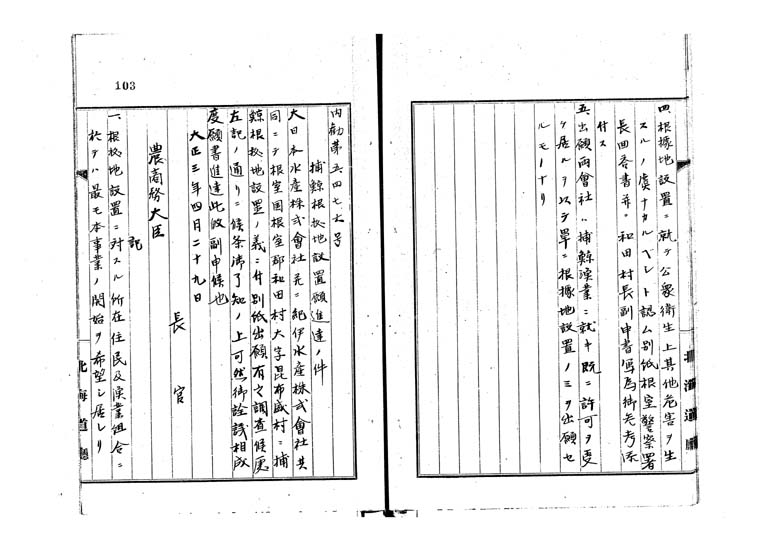 四、根據地設置ニ就テ公衆衛生上其他危害ヲ生
スルノ虞ナカルベシト認ム別紙根室警察署
長回答書并ニ和田村長副申書写為御参考添
付ス
五、出願両會社ハ捕鯨漁業ニ就キ既ニ許可ヲ受
ケ居ルヲ以テ單ニ根據地設置ノミヲ出願セ
ルモノナリ
北海道廳
103
内勧第五四七六号
捕鯨根拠地設置願進達ノ件
大日本水産株式會社並ニ紀伊水産株式會社共
同ニテ根室国根室郡和田村大字昆布盛村ニ捕
鯨根拠地設置ノ義ニ付別紙出願有之調査候處
左記ノ通リニ候条御了知ノ上可然御詮議相成
度願書進達此段副申候也
大正三年四月二十九日
長官
農商務大臣
記
一、根拠地設置ニ対スル所在住民及漁業組合ニ
於テハ最モ本事業ノ開始ヲ希望シ居レリ
北海道廳